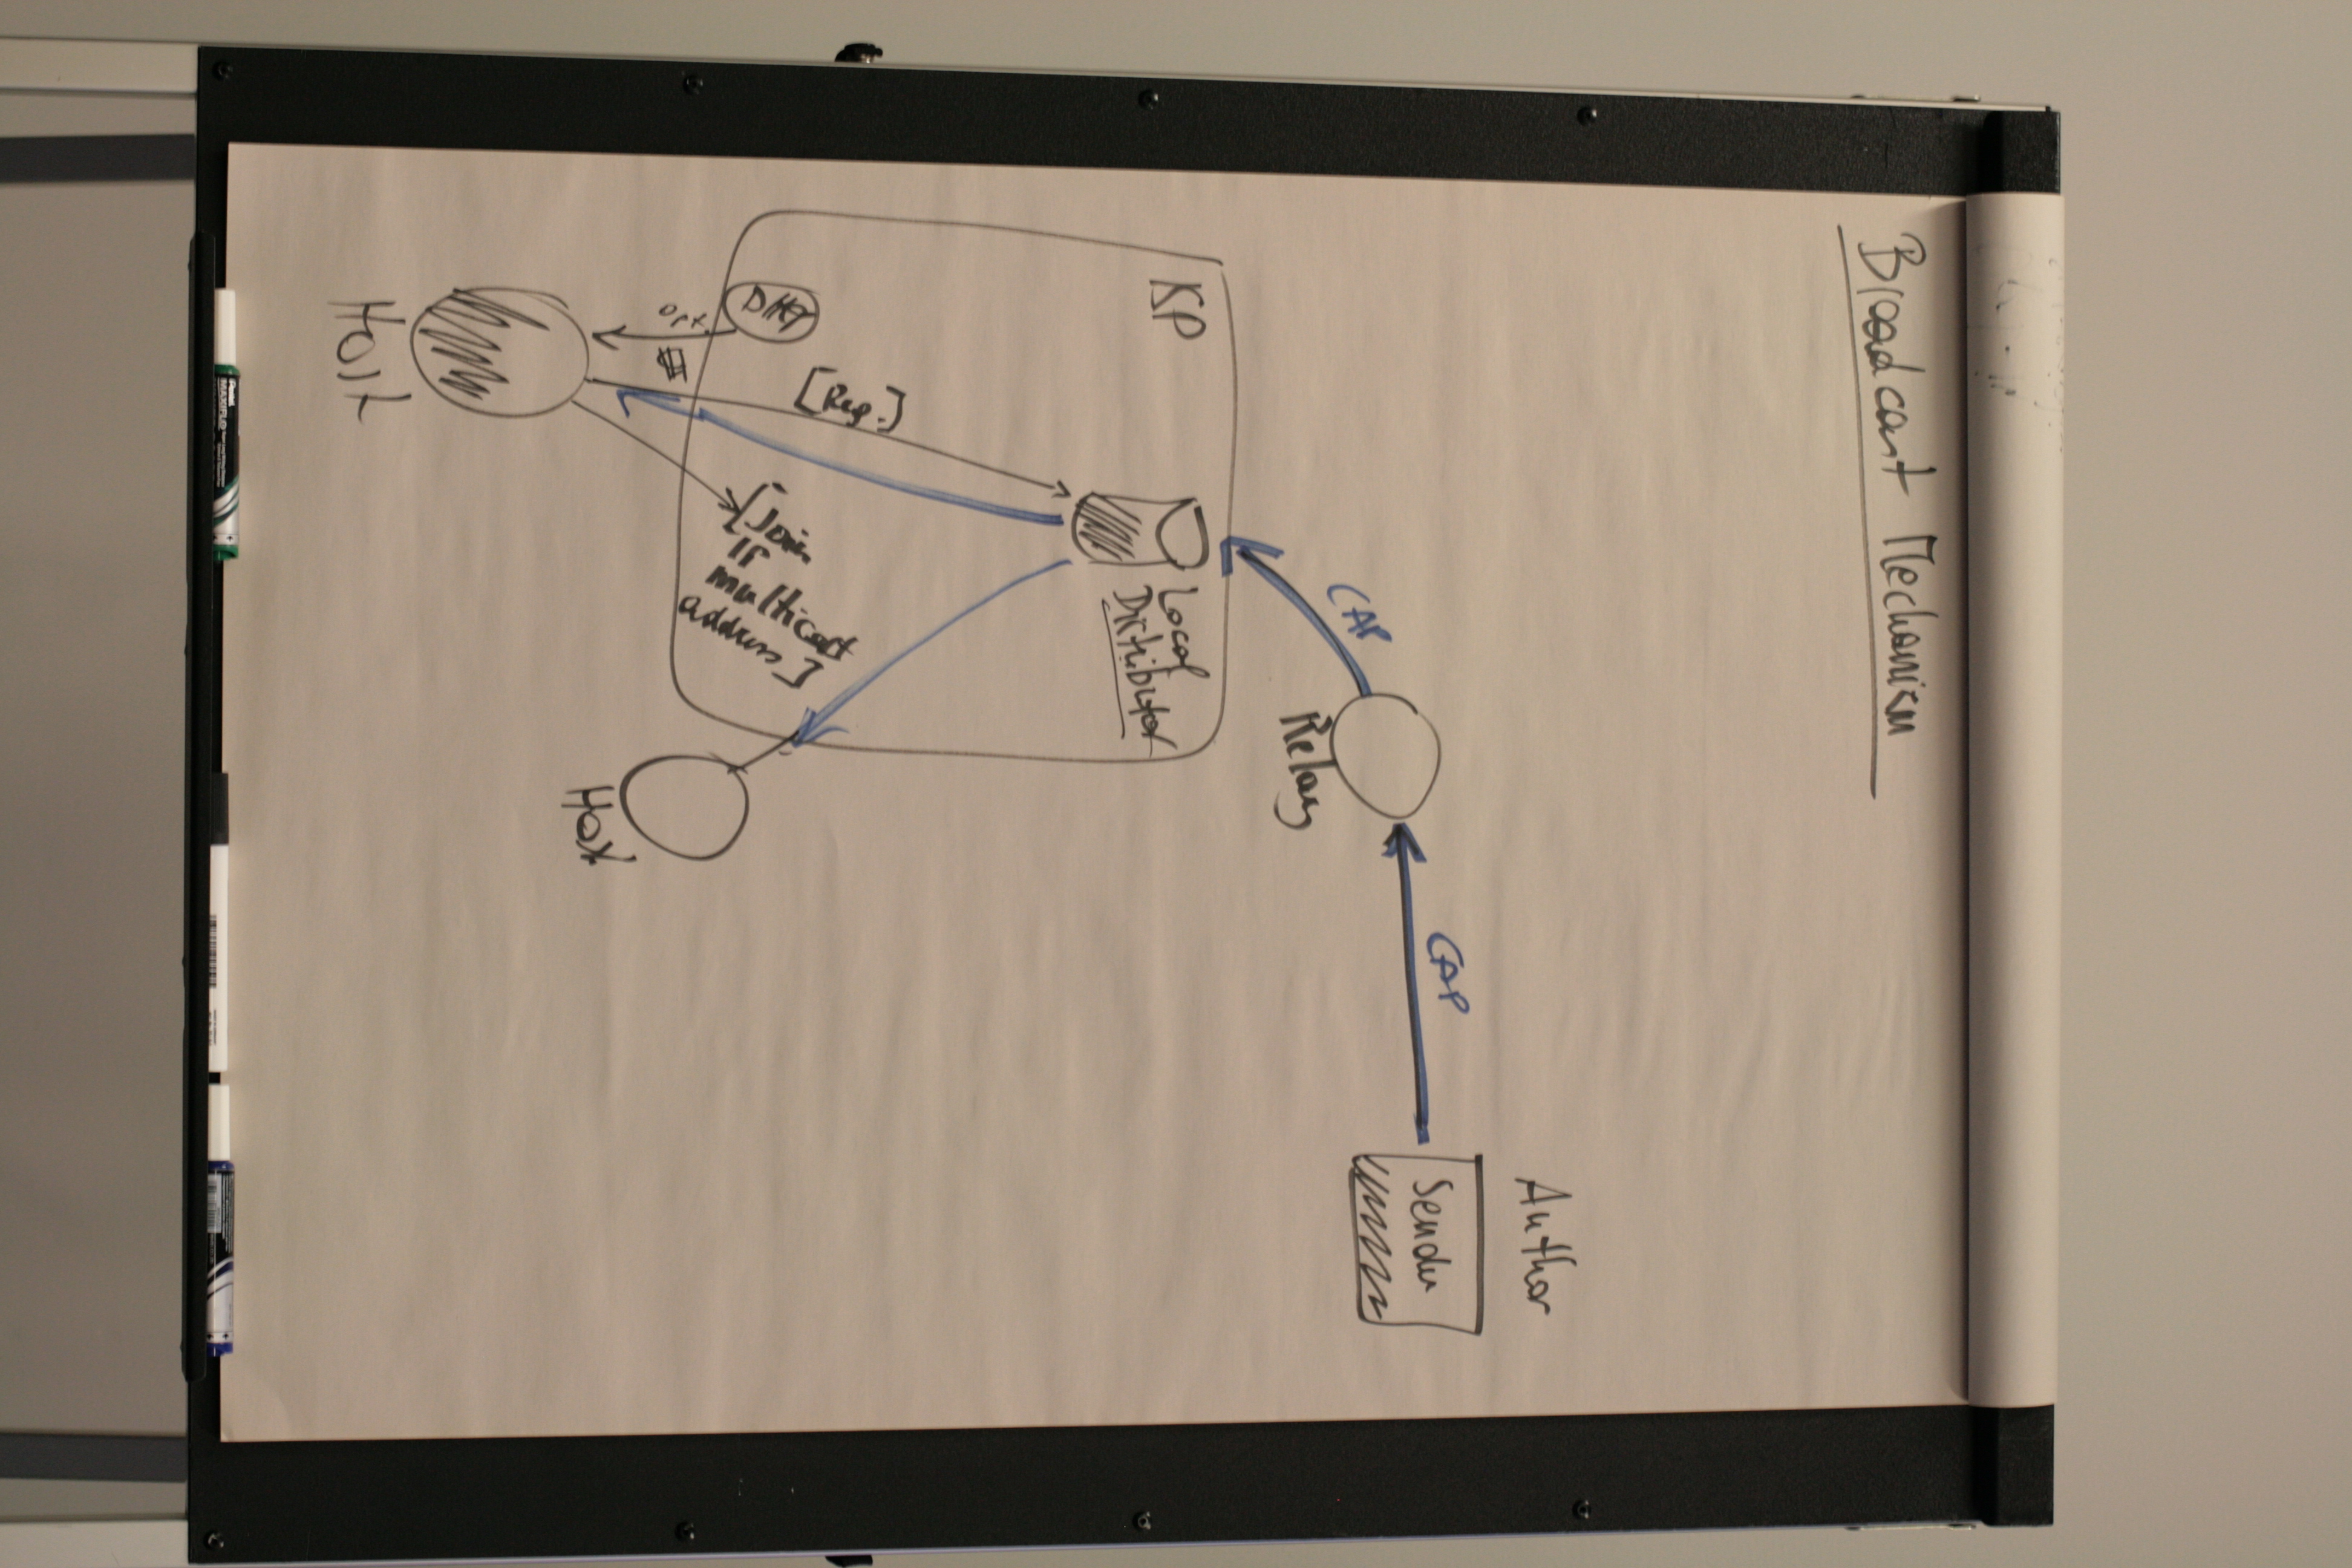 Broadcast Mechanism
Author
Sender
CAP
CAP
Relay
ISP
Local
Distributor
[Reg.]
[Join
IP
multicast
address]
Opt.
Host
Host
Pentel
MAXIFLO